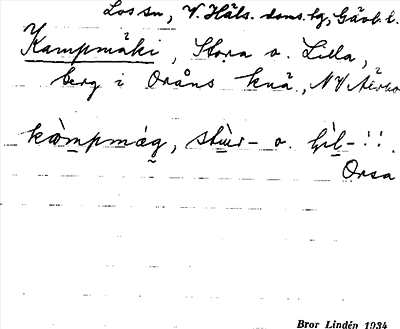 Los sn, V. Häls. doms. hg, Gävl. l.
Kampmäki, Stora o. Lilla,
berg i Oråns knä, NV
kòmpmág, stùr- o. lìl- :'.
Orsa
Bror Lindén 1934